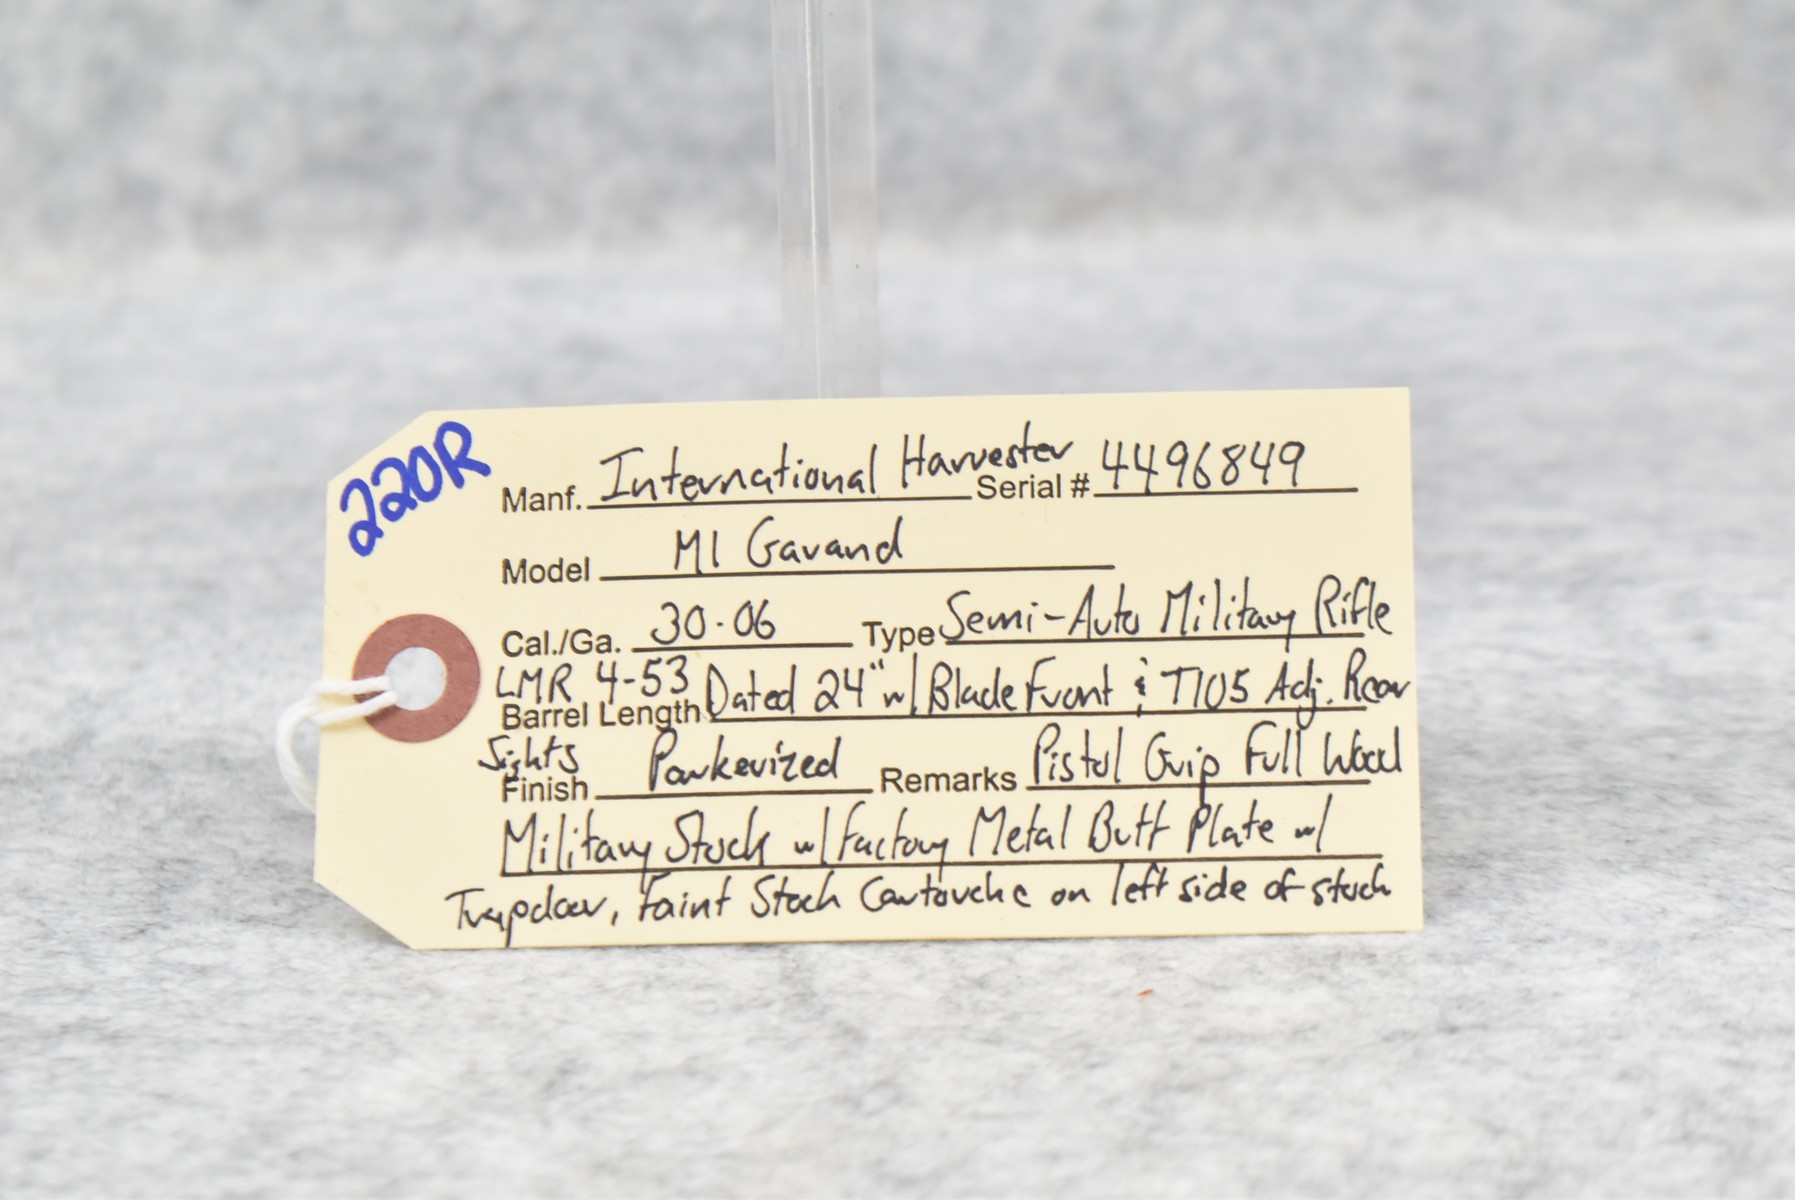 220R
Manf. International Harvester Serial # 4496849
Model M1 Garand
Cal./Ga. 30-06 Type Semi-Auto Military Rifle
LMR 4-53 Dated 24" w/ Blade Front & T105 Adj. Rear
Barrel Length
Sights Parkerized Remarks Pistol Grip Full Wood
Finish
Military Stock w/ Factory Metal Butt Plate w/
Trapdoor, Faint Stock Cartouche on left side of stock